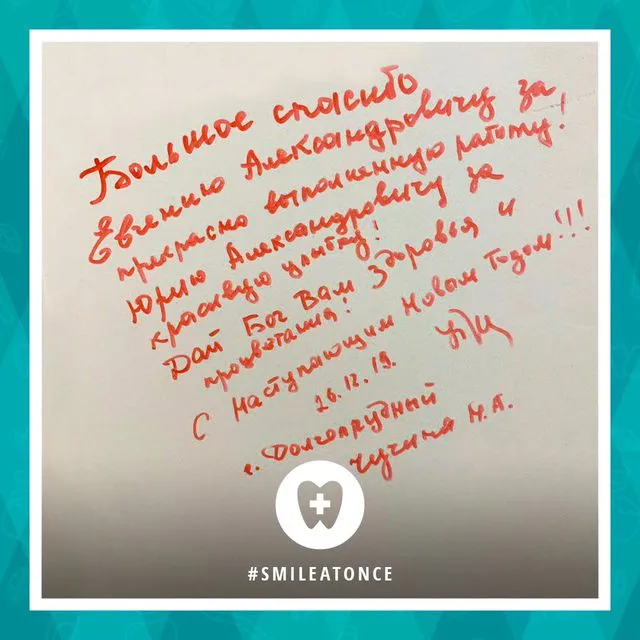 Большое спасибо
Евгению Александровичу за
прекрасно выполненную работу!
Юрию Александровичу за
красивую улыбку!
Дай Бог Вам Здоровья и
процветания!
С Наступающим Новым Годом!!!
26.12.19.
г. Долгопрудный
Чучина Н.А.
#SMILEATONCE